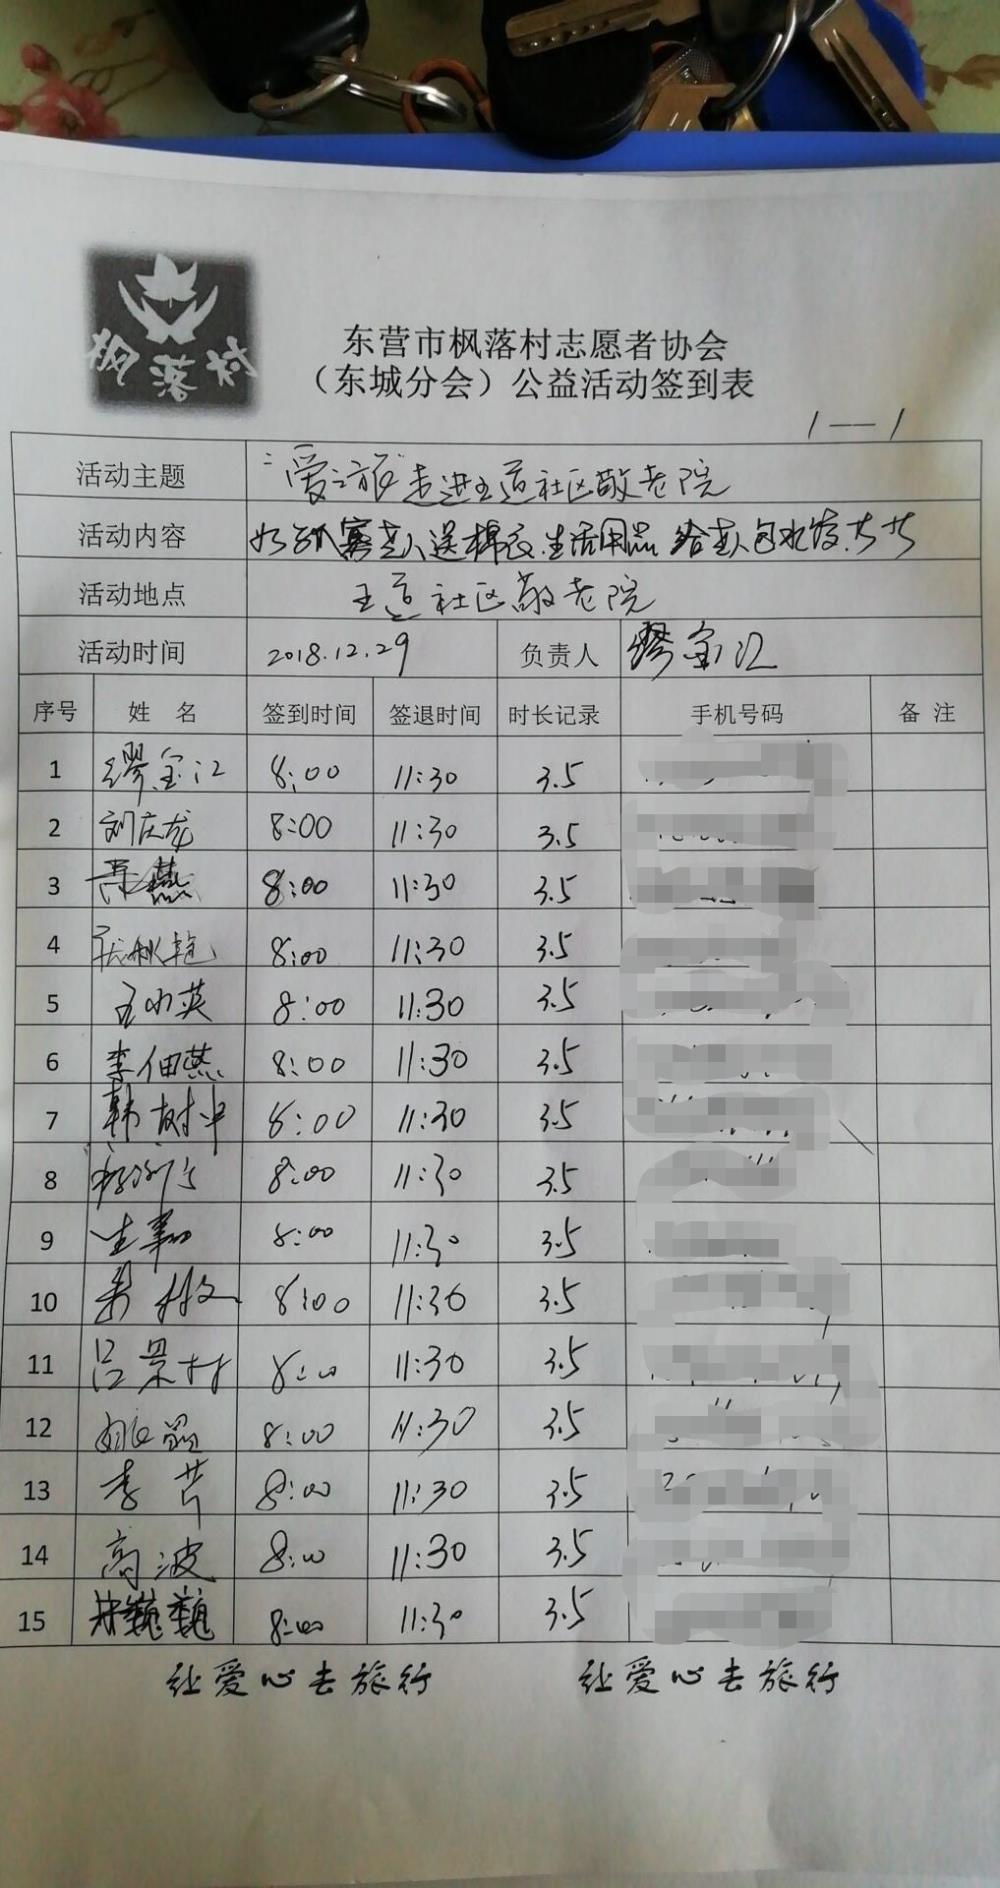 枫落村
东营市枫落村志愿者协会
（东城分会）公益活动签到表
1—1
活动主题 爱之旅走进王营社区敬老院
活动内容 为孤寡老人送棉衣.生活用品 给老人包水饺
活动地点 王营社区敬老院
活动时间 2018.12.29 负责人 缪宝江
序号 姓 名 签到时间 签退时间 时长记录 手机号码 备 注
1 缪宝江 8:00 11:30 3.5
2 刘庆龙 8:00 11:30 3.5
3 8:00 11:30 3.5
4 8:00 11:30 3.5
5 王小英 8:00 11:30 3.5
6 李佃燕 8:00 11:30 3.5
7 韩树冲 8:00 11:30 3.5
8 8:00 11:30 3.5
9 8:00 11:30 3.5
10 8:00 11:30 3.5
11 吕景村 8:00 11:30 3.5
12 8:00 11:30 3.5
13 李芹 8:00 11:30 3.5
14 高波 8:00 11:30 3.5
15 8:00 11:30 3.5
让爱心去旅行 让爱心去旅行